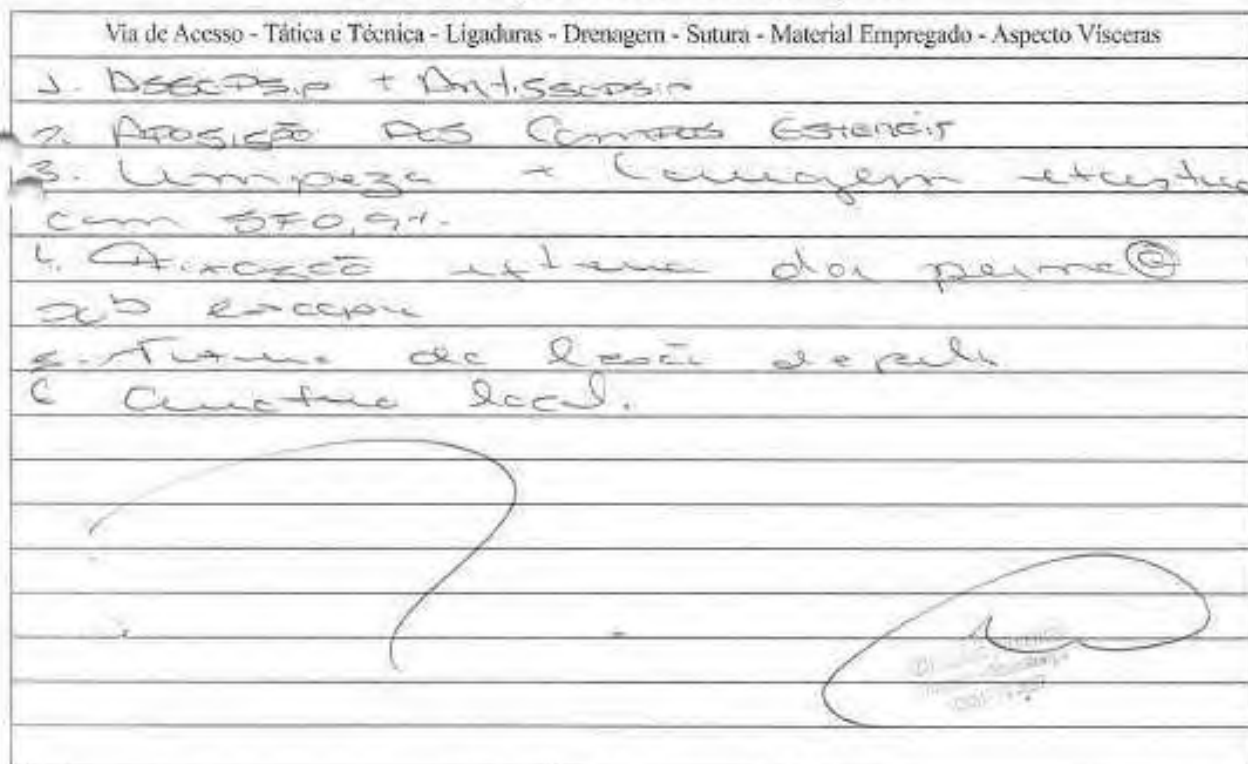 Via de Acesso - Tática e Técnica - Ligaduras - Drenagem - Sutura - Material Empregado - Aspecto Vísceras
1. Assepsia + Antissepsia
2. Aposição dos Campos Estéreis
3. Limpeza + Lavagem exaustiva
com SF0,9%.
4. Fixação externa da perna
sob escopia
5. de lesão de pele
6 Curativo local.